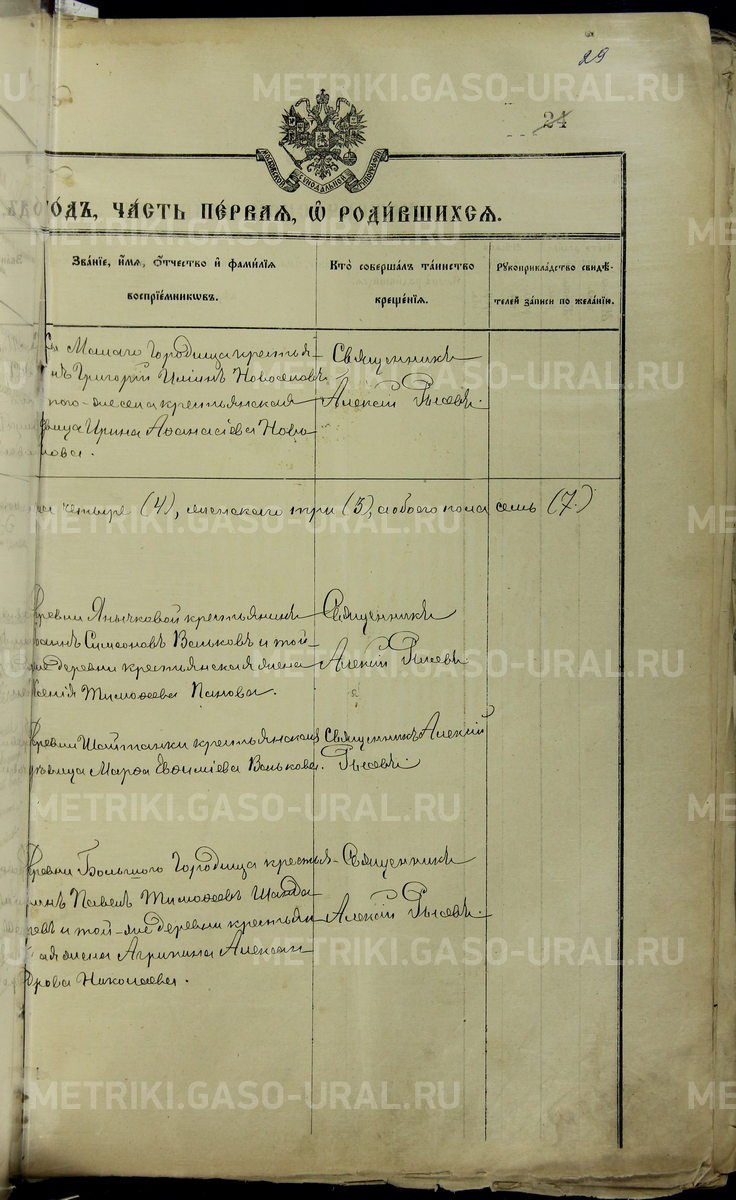 29
24
МОСКОВСКОЙ СѴНОДАЛЬНОЙ ТИПОГРАФІИ
ГО́ДЪ, ЧА́СТЬ ПЕ́РВАЯ, Ѡ҆ РОДИ́ВШИХСЯ.
Зва́нїе, и҆́мя, ѻ҆́тчество и҆ фами́лїя
воспрїе́мникѡвъ.
Кто̀ соверша́лъ та́инство
креще́нїя.
Рꙋкоприкла́дство свидѣ́-
телей за́писи по жела́нїю.
Малаго Городища крестья-
нъ Григорій Иліинъ
того-же села крестьянская
Ирина Аѳанасіева Ново-
Священникъ
Алексій
четыре (4), женскаго три (3), обоего пола семь (7.)
деревни Янычковой крестьянинъ
Симеоновъ Вальковъ и той-
же деревни крестьянская жена
Ксенія Тимоѳеева Панова.
Священникъ
Алексій
деревни Шайтанки крестьянская
дѣвица Марѳа Евѳиміева Валькова.
Священникъ Алексій
деревни Большого Городища крестья-
нинъ Павелъ Тимоѳеевъ
и той-же деревни крестьян-
ская жена Агрипина Алексан-
дрова Николаева.
Священникъ
Алексій
METRIKI.GASO-URAL.RU